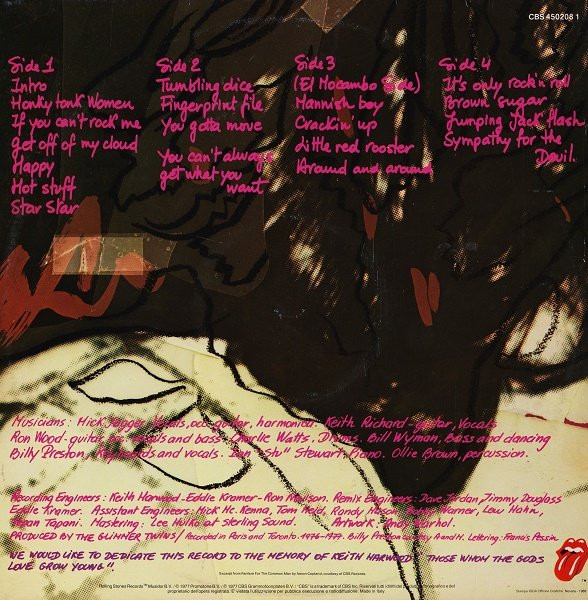 CBS 450208 1
Side 1
Intro
Honky tonk Women
If you can't rock me
get off of my cloud
Happy
Hot stuff
Star Star
Side 2
Tumbling dice
Fingerprint file
You gotta move
You can't always
get what you
want
Side 3
(El Mocambo Side)
Mannish boy
Crackin' up
Little red rooster
Around and around
Side 4
It's only rock'n roll
Brown sugar
Jumping Jack flash
Sympathy for the
Devil.
Musicians: Mick Jagger vocals, occ. guitar, harmonica. Keith Richard-guitar, Vocals
Ron Wood-guitar, occ. vocals and bass. Charlie Watts, Drums. Bill Wyman, Bass and dancing
Billy Preston, Keyboards and vocals. Ian "Stu" Stewart, Piano. Ollie Brown, percussion.
Recording Engineers: Keith Harwood-Eddie Kramer-Ron Nevison. Remix Engineers: Dave Jordan, Jimmy Douglass
Eddie Kramer. Assistant Engineers: Mick Mc. Kenna, Tom Heid, Randy Mason, Bobby Warner, Lew Hahn,
Tapani. Mastering: Lee Hulko at sterling Sound. Artwork: Andy Warhol.
PRODUCED BY THE GLIMMER TWINS / Recorded in Paris and Toronto. 1976-1977. Billy Preston Courtesy A and M. Lettering: Francis Pessin
WE WOULD LIKE TO DEDICATE THIS RECORD TO THE MEMORY OF KEITH HARWOOD "THOSE WHOM THE GODS
LOVE GROW YOUNG".
Excerpt from Fanfare For The Common Man by Aaron Copland, courtesy of CBS Records